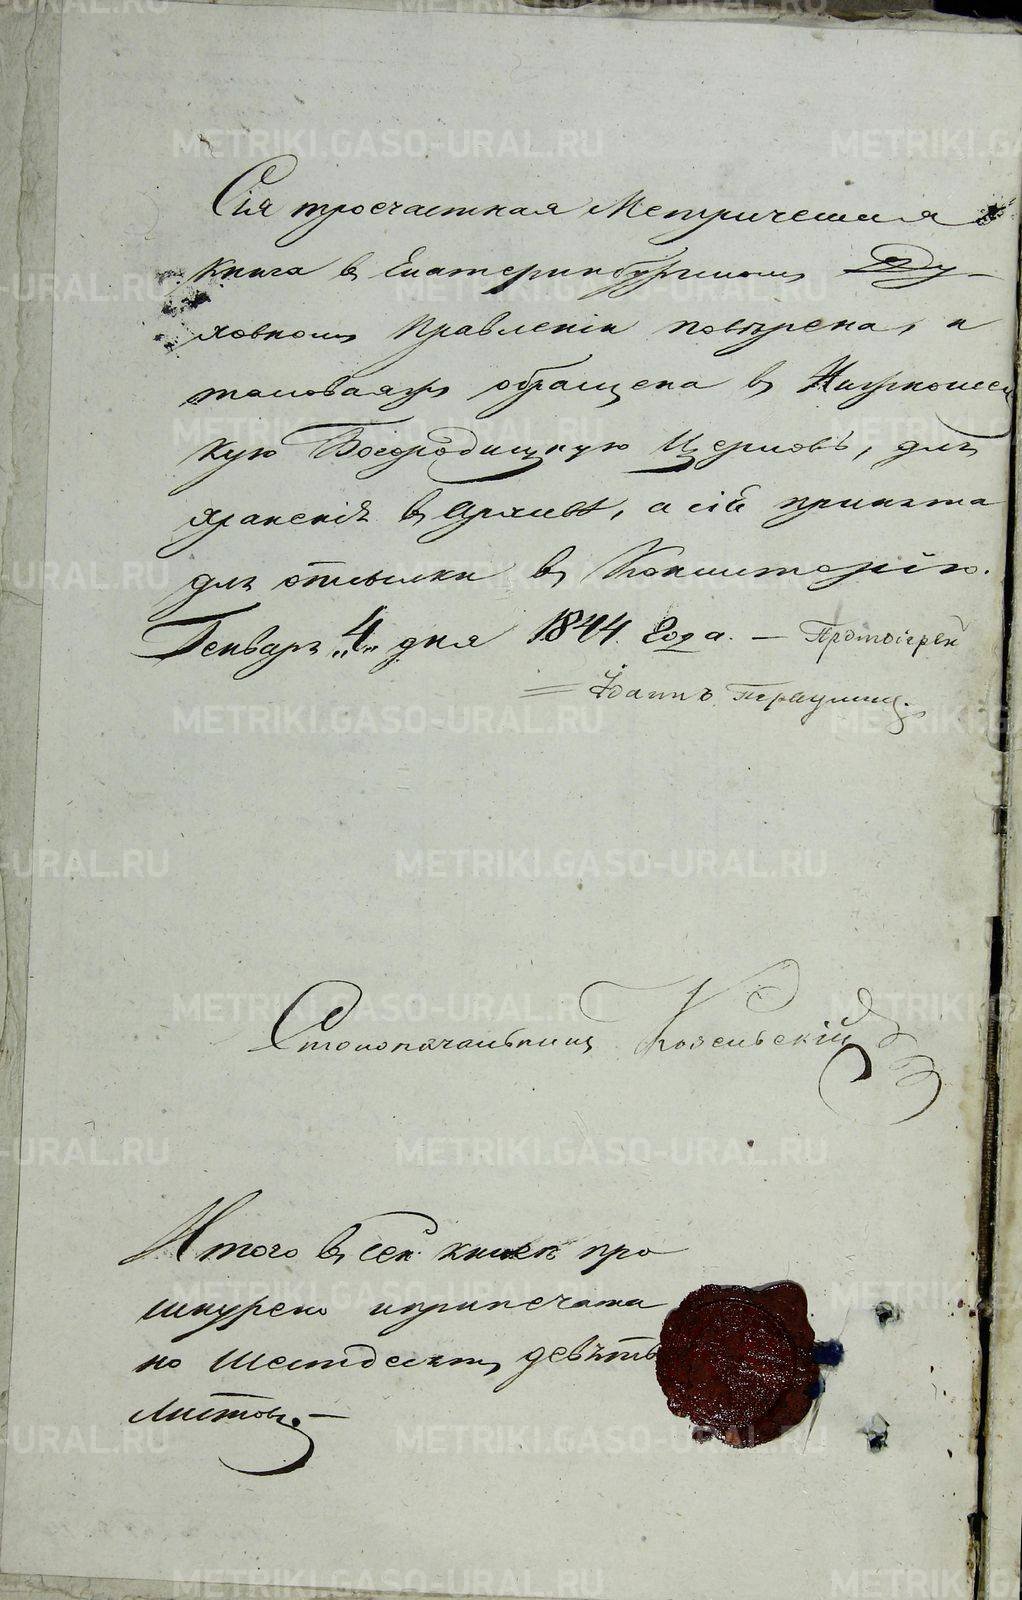 Сія троечастная Метрическая
книга въ Екатеринбургскомъ Ду-
ховномъ Правленіи повѣрена, и
таковаяжъ обращена въ
кую Богородицкую Церковь, для
храненія въ Архивѣ, а сія принята
для отсылки въ Консисторію.
Генваря „4„ дня 1844 года. — Протоіерей
= Іоаннъ
Столоначальникъ Козельскій
Итого въ сей книгѣ про
шнурено и припечата
но шестдесятъ девять
листовъ. —
METRIKI.GASO-URAL.RU